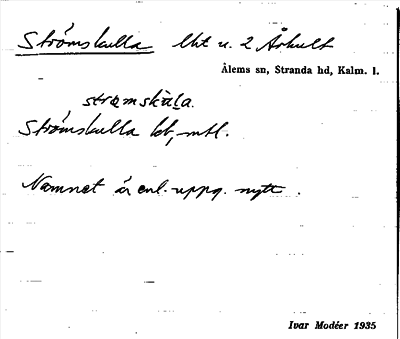 Strömskulla lht u. 2 Århult
Ålems sn, Stranda hd, Kalm. l.
strømskùla.
Strömskulla kb, mtl.
Namnet är enl. uppg. nytt.
Ivar Modéer 1935